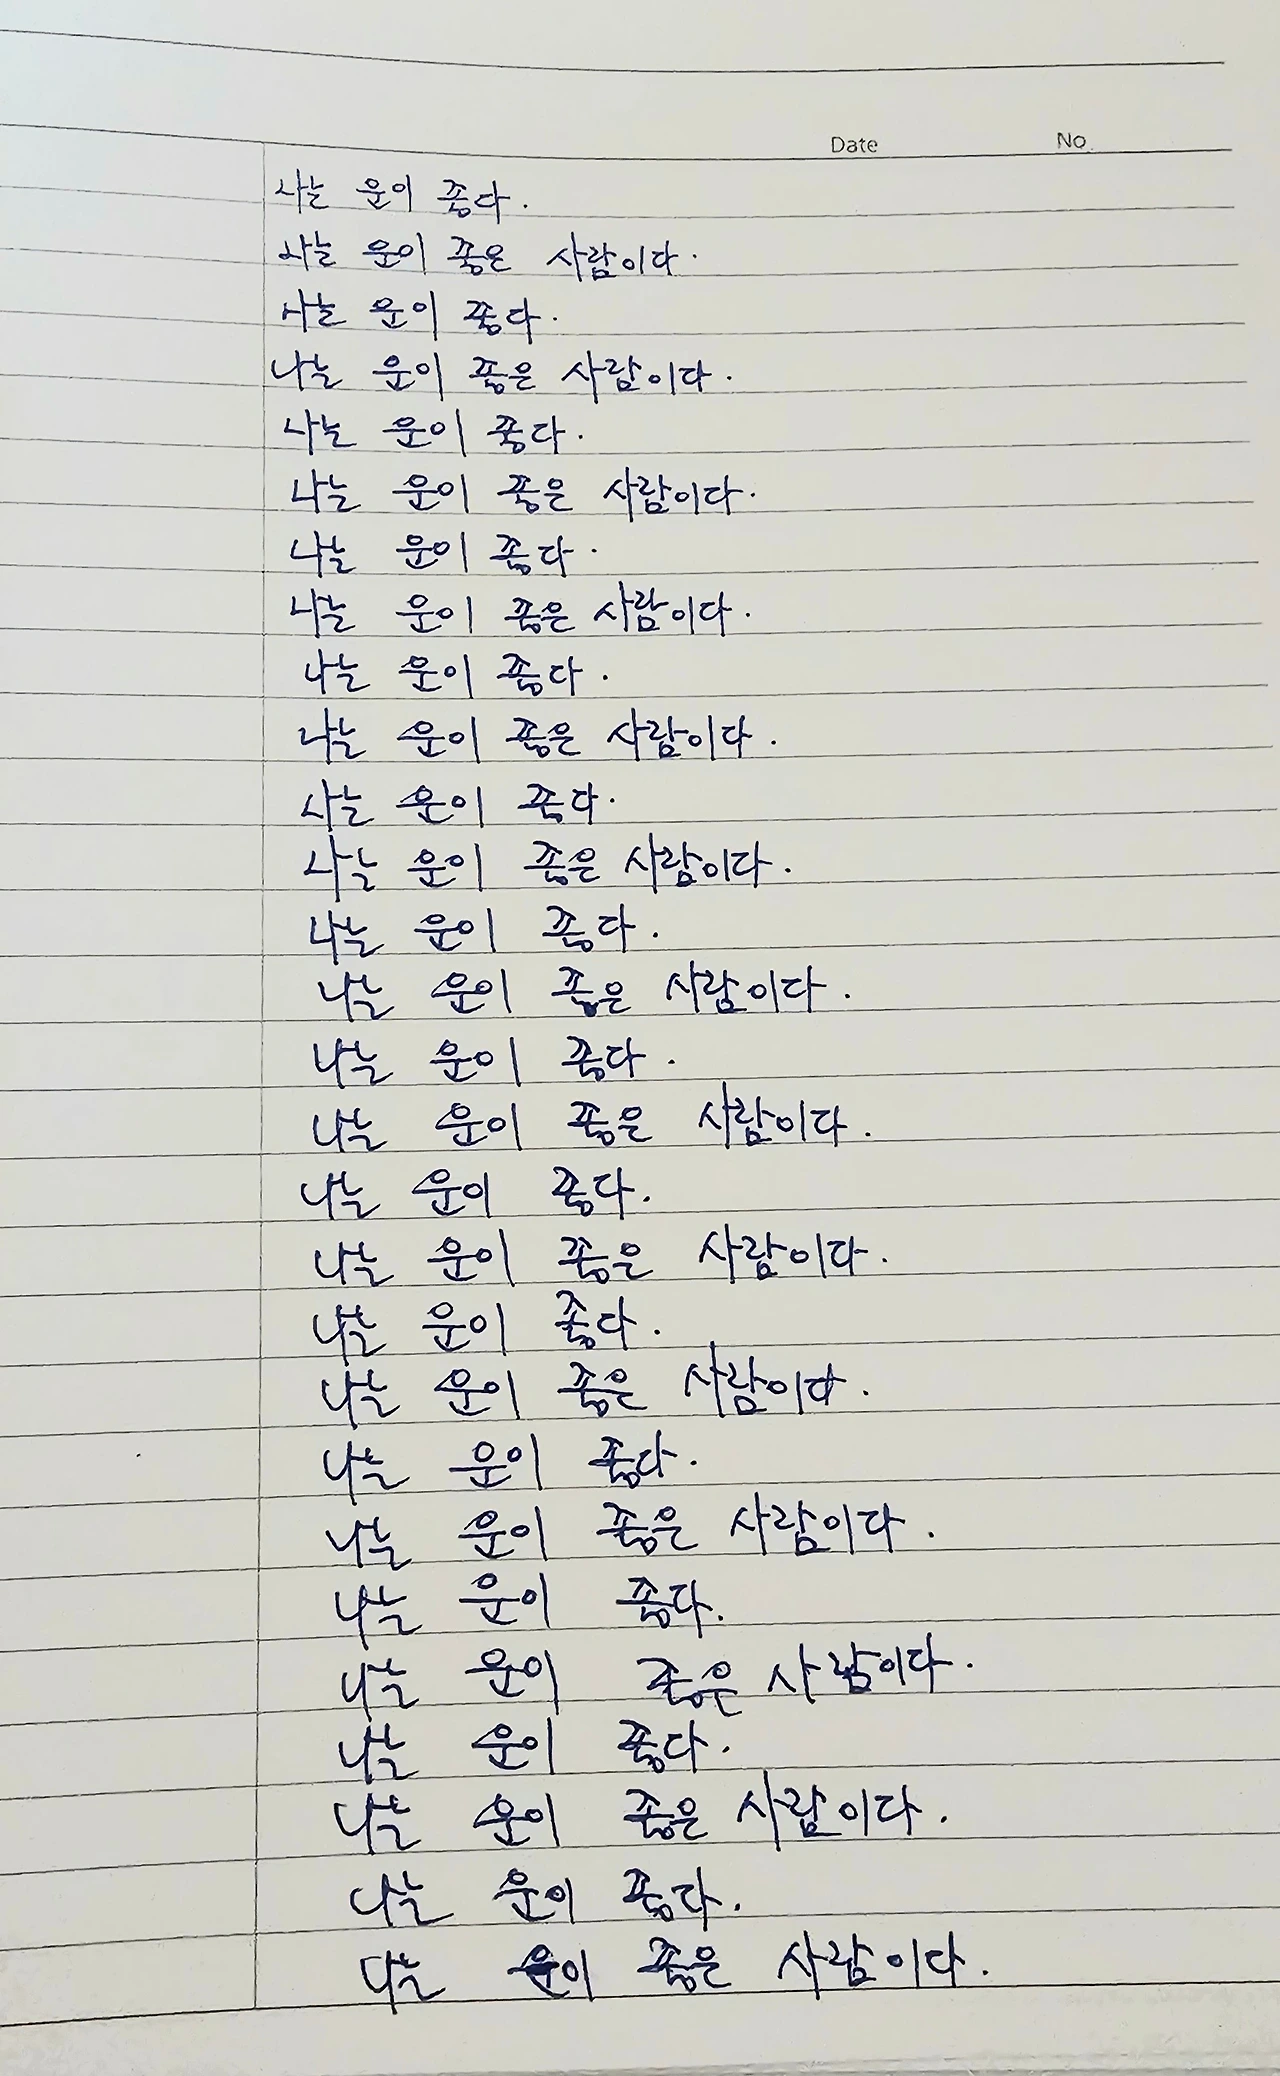 Date No.
나는 운이 좋다.
나는 운이 좋은 사람이다.
나는 운이 좋다.
나는 운이 좋은 사람이다.
나는 운이 좋다.
나는 운이 좋은 사람이다.
나는 운이 좋다.
나는 운이 좋은 사람이다.
나는 운이 좋다.
나는 운이 좋은 사람이다.
나는 운이 좋다.
나는 운이 좋은 사람이다.
나는 운이 좋다.
나는 운이 좋은 사람이다.
나는 운이 좋다.
나는 운이 좋은 사람이다.
나는 운이 좋다.
나는 운이 좋은 사람이다.
나는 운이 좋다.
나는 운이 좋은 사람이다.
나는 운이 좋다.
나는 운이 좋은 사람이다.
나는 운이 좋다.
나는 운이 좋은 사람이다.
나는 운이 좋다.
나는 운이 좋은 사람이다.
나는 운이 좋다.
나는 운이 좋은 사람이다.